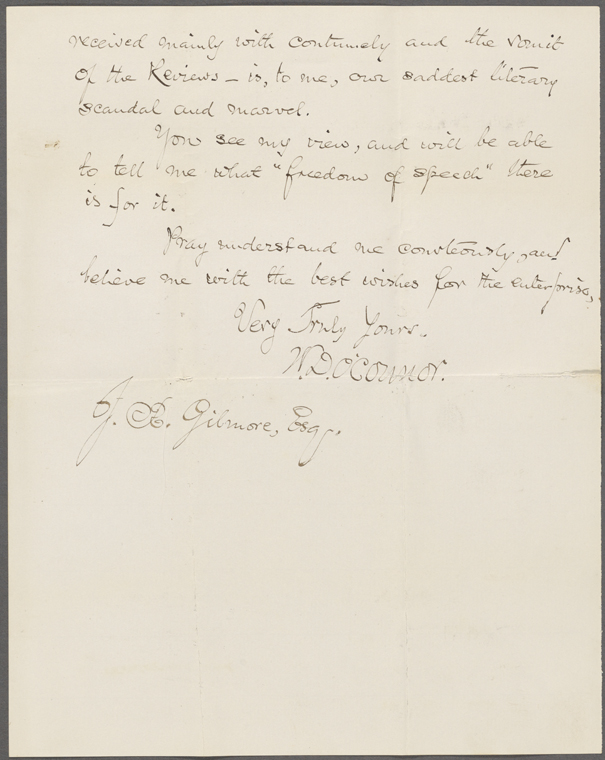 received mainly with contumely and the vomit
of the Reviews — is, to me, our saddest literary
scandal and marvel.
You see my view, and will be able
to tell me what "freedom of speech" there
is for it.
Pray understand me courteously, and
believe me with the best wishes for the enterprise,
Very Truly Yours.
W.D. O'Connor.
J. R. Gilmore, Esq.